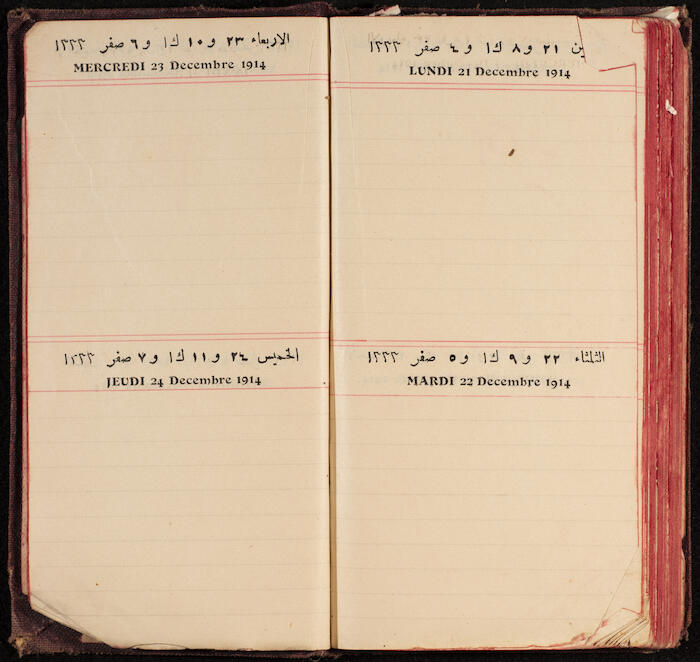 ين ٢١ و ٨ ك١ و ٤ صفر ١٣٣٣
LUNDI 21 Decembre 1914
الثلثاء ٢٢ و ٩ ك١ و ٥ صفر ١٣٣٣
MARDI 22 Decembre 1914
الاربعاء ٢٣ و ١٠ ك١ و ٦ صفر ١٣٣٣
MERCREDI 23 Decembre 1914
الخميس ٢٤ و ١١ ك١ و ٧ صفر ١٣٣٣
JEUDI 24 Decembre 1914